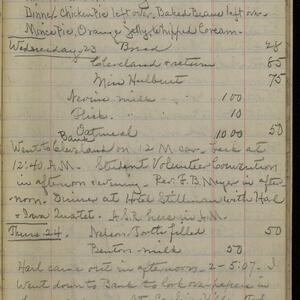 Dinner Chicken Pie left over, Baked Beans left over
Mince Pie, Orange Jelly & Whipped Cream.
Wednesday, 23 Bread 28
Cleveland & return 85
Miss Hulbert 75
Nevins milk 1 00
Pick. 10
Oatmeal 10 00 50
Bank
Went to Cleveland on 12 M car. Back at
12:40 A.M. Student Volunteer Convention
in afternoon & evening. Rev. F. B. Meyer in after-
noon. Dinner at Hotel Stillman with Hal
& Iowa Quartet. A.S.R. here in A.M.
Thurs. 24. Nelson, Tooth filled 50
Benton - milk 50
Harl came out in afternoon. 2 - 5:07. I
Went down to Bank to look over papers in